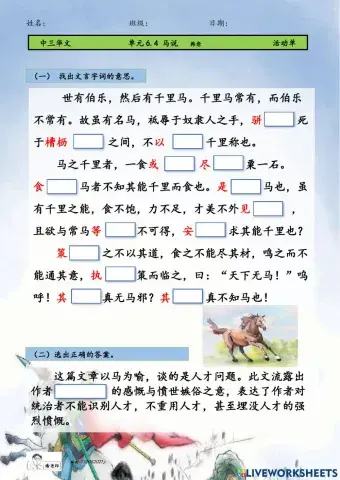 姓名： 班级： 日期：
中三华文 单元6.4 马说 韩愈 活动单
（一） 找出文言字词的意思。
世有伯乐，然后有千里马。千里马常有，而伯乐
不常有。故虽有名马，祗辱于奴隶人之手，骈 死
于槽枥 之间，不以 千里称也。
马之千里者，一食或 尽 粟一石。
食 马者不知其能千里而食也。是 马也，虽
有千里之能，食不饱，力不足，才美不外见 ，
且欲与常马等 不可得，安 求其能千里也？
策 之不以其道，食之不能尽其材，鸣之而不
能通其意，执 策而临之，曰：“天下无马！”呜
呼！其 真无马邪？其 真不知马也！
（二）选出正确的答案。
这篇文章以马为喻，谈的是人才问题。此文流露出
作者 的感慨与愤世嫉俗之意，表达了作者对
统治者不能识别人才，不重用人才，甚至埋没人才的强
烈愤慨。
LIVEWORKSHEETS